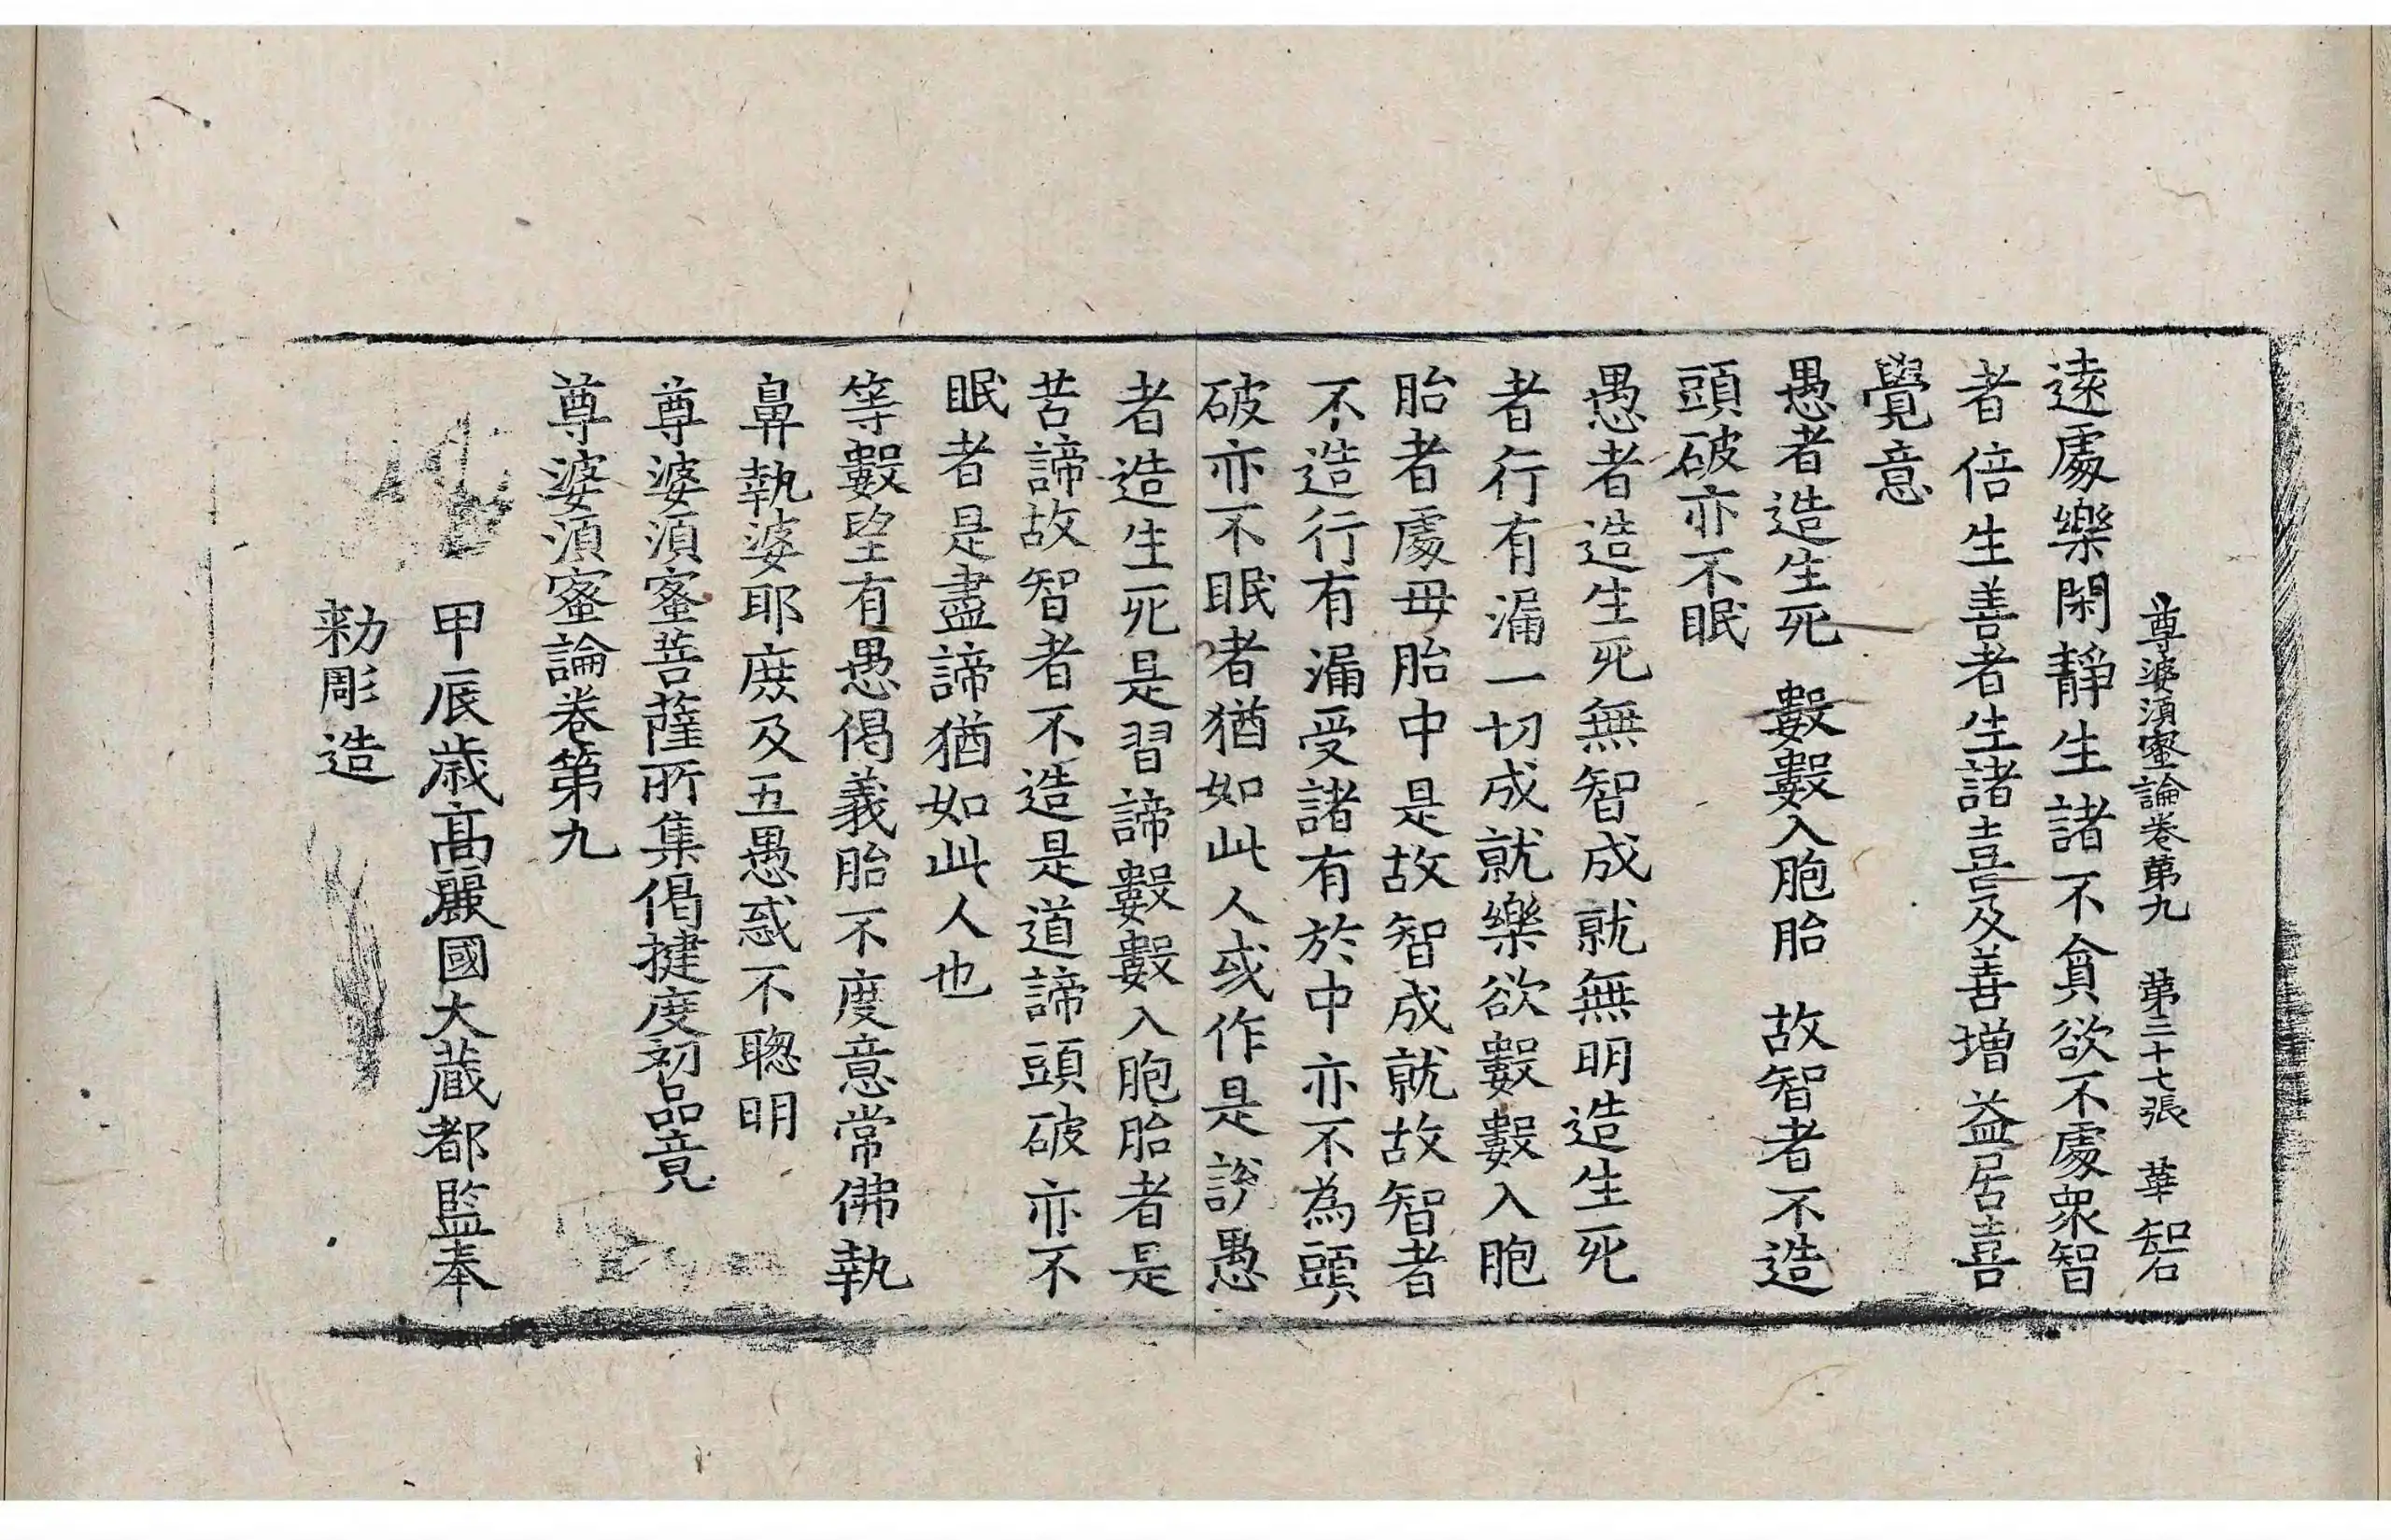 尊婆湏蜜論卷第九 第三十七張 華 㓡
逺處樂閑靜生諸不貪欲不處衆智
者倍生善者生諸喜及善增益居喜
覺意
愚者造生死 數數入胞胎 故智者不造
頭破亦不眠
愚者造生死無智成就無明造生死
者行有漏一切成就樂欲數數入胞
胎者處母胎中是故智成就故智者
不造行有漏受諸有於中亦不為頭
破亦不眠者猶如此人或作是說愚
者造生死是習諦數數入胞胎者是
苦諦故智者不造是道諦頭破亦不
眠者是盡諦猶如此人也
等數望有愚偈義胎不度意常佛執
鼻執婆耶庶及五愚惑不聦明
尊婆湏蜜菩薩所集偈揵度初品竟
尊婆湏蜜論卷第九
甲辰歳髙麗國大蔵都監奉
勑彫造